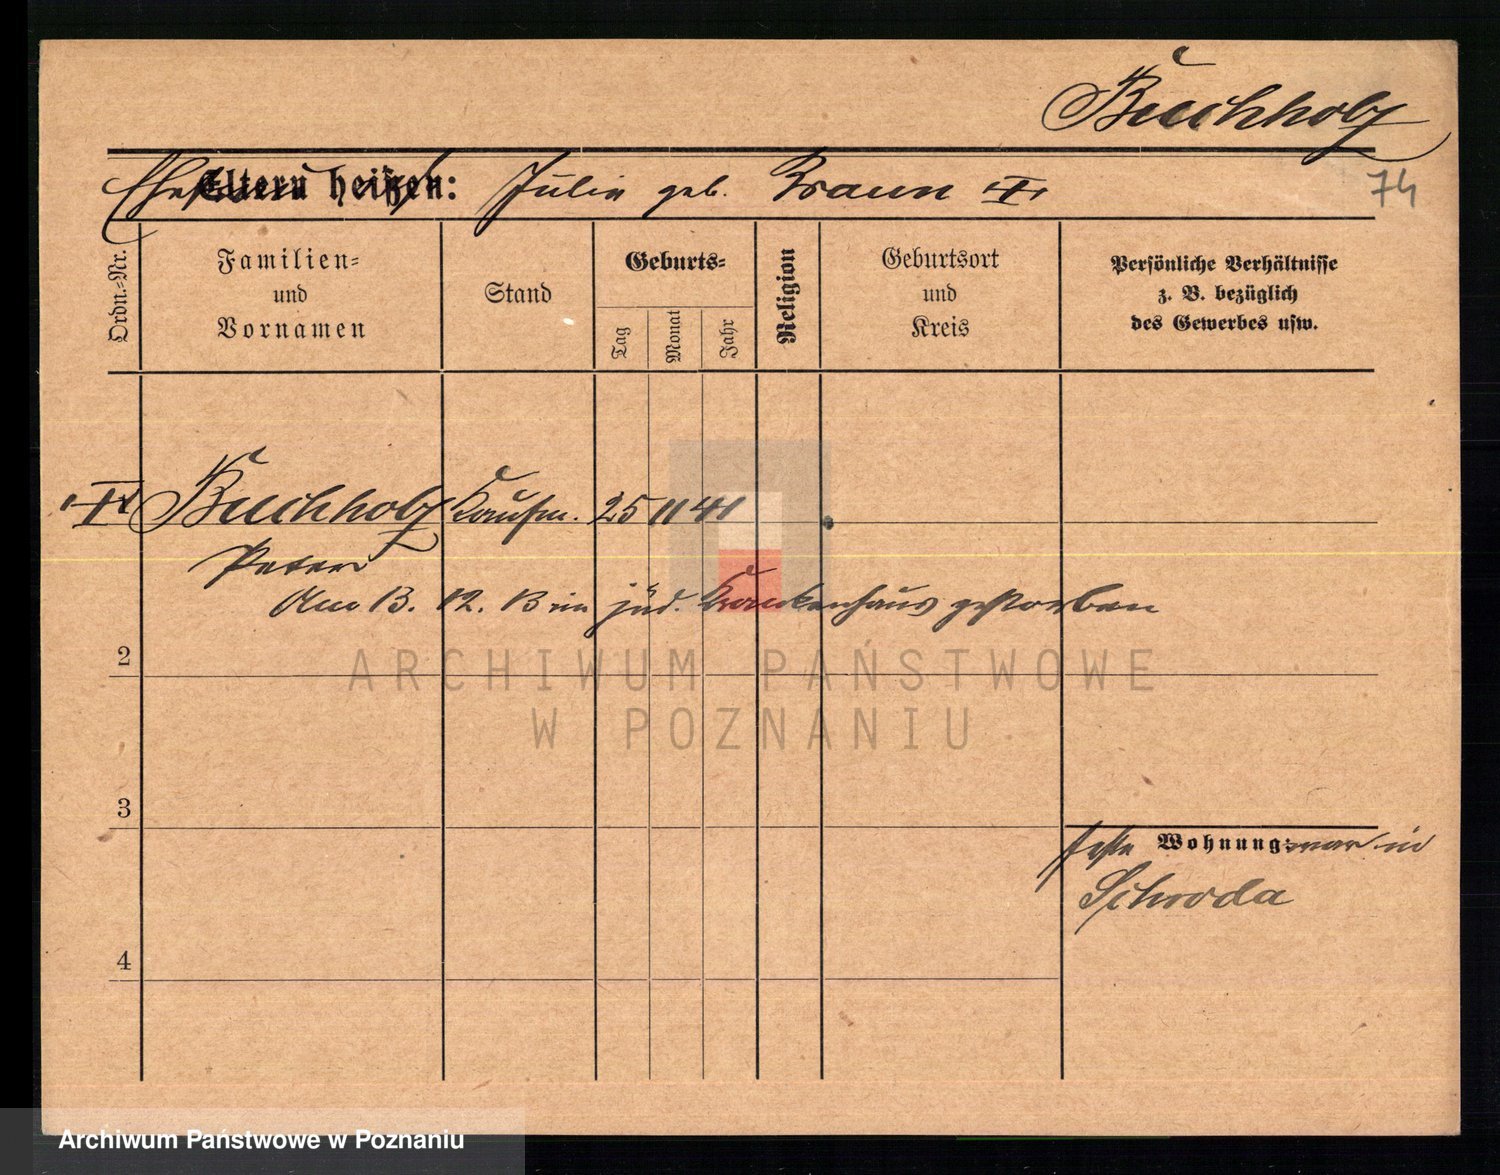 Buchholz
74
Eltern heißen: Julie geb. Braun "I"
Ordn.-Nr.
Familien-
und
Vornamen
Stand
Geburts-
Tag
Monat
Jahr
Religion
Geburtsort
und
Kreis
Persönliche Verhältnisse
z. B. bezüglich
des Gewerbes usw.
Buchholz Kaufm. 25 11 41
Peter
Am 13. 12. 13 im jüd. Krankenhaus gestorben
2
ARCHIWUM PAŃSTWOWE
W POZNANIU
3
feste Wohnung war in
Schroda
4
Archiwum Państwowe w Poznaniu